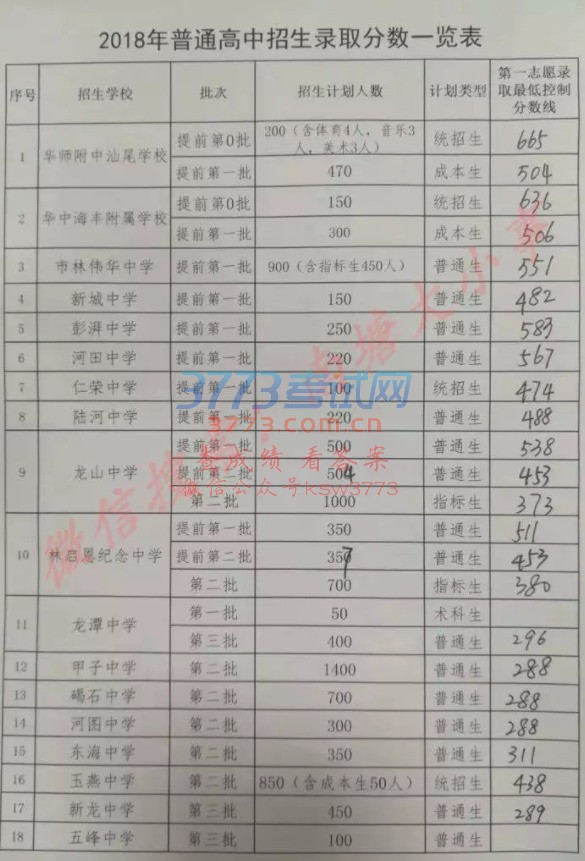 2018年普通高中招生录取分数一览表
序号 招生学校 批次 招生计划人数 计划类型 第一志愿录取最低控制分数线
1 华师附中汕尾学校 提前第0批 200（含体育4人，音乐3人，美术3人） 统招生 665
提前第一批 470 成本生 504
2 华中海丰附属学校 提前第0批 150 统招生 636
提前第一批 300 成本生 506
3 市林伟华中学 提前第一批 900（含指标生450人） 普通生 551
4 新城中学 提前第一批 150 普通生 482
5 彭湃中学 提前第一批 250 普通生 583
6 河田中学 提前第一批 220 普通生 567
7 仁荣中学 提前第一批 100 统招生 474
8 陆河中学 提前第一批 220 普通生 488
9 龙山中学 提前第一批 500 普通生 538
提前第二批 504 普通生 453
第二批 1000 指标生 373
10 林启恩纪念中学 提前第一批 350 普通生 511
提前第二批 357 普通生 453
第二批 700 指标生 380
11 龙潭中学 第一批 50 术科生
第三批 400 普通生 296
12 甲子中学 第二批 1400 普通生 288
13 碣石中学 第二批 700 普通生 288
14 河图中学 第二批 300 普通生 288
15 东海中学 第二批 350 普通生 311
16 玉燕中学 第二批 850（含成本生50人） 统招生 438
17 新龙中学 第三批 450 普通生 289
18 五峰中学 第三批 100 普通生
3773考试网
3773.com.cn
查成绩 看答案
微信公众号ksw3773